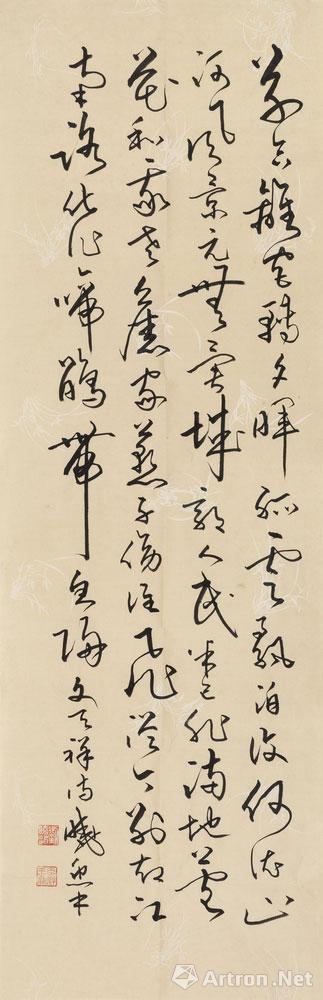 草合離宮轉夕暉孤雲飄泊復何依山
河風景元無異城郭人民半已非滿地蘆
花和我老舊家燕子傍誰飛從今別却江
南路化作啼鵑帶血歸 文天祥詩 曉
雅昌 Artron.Net